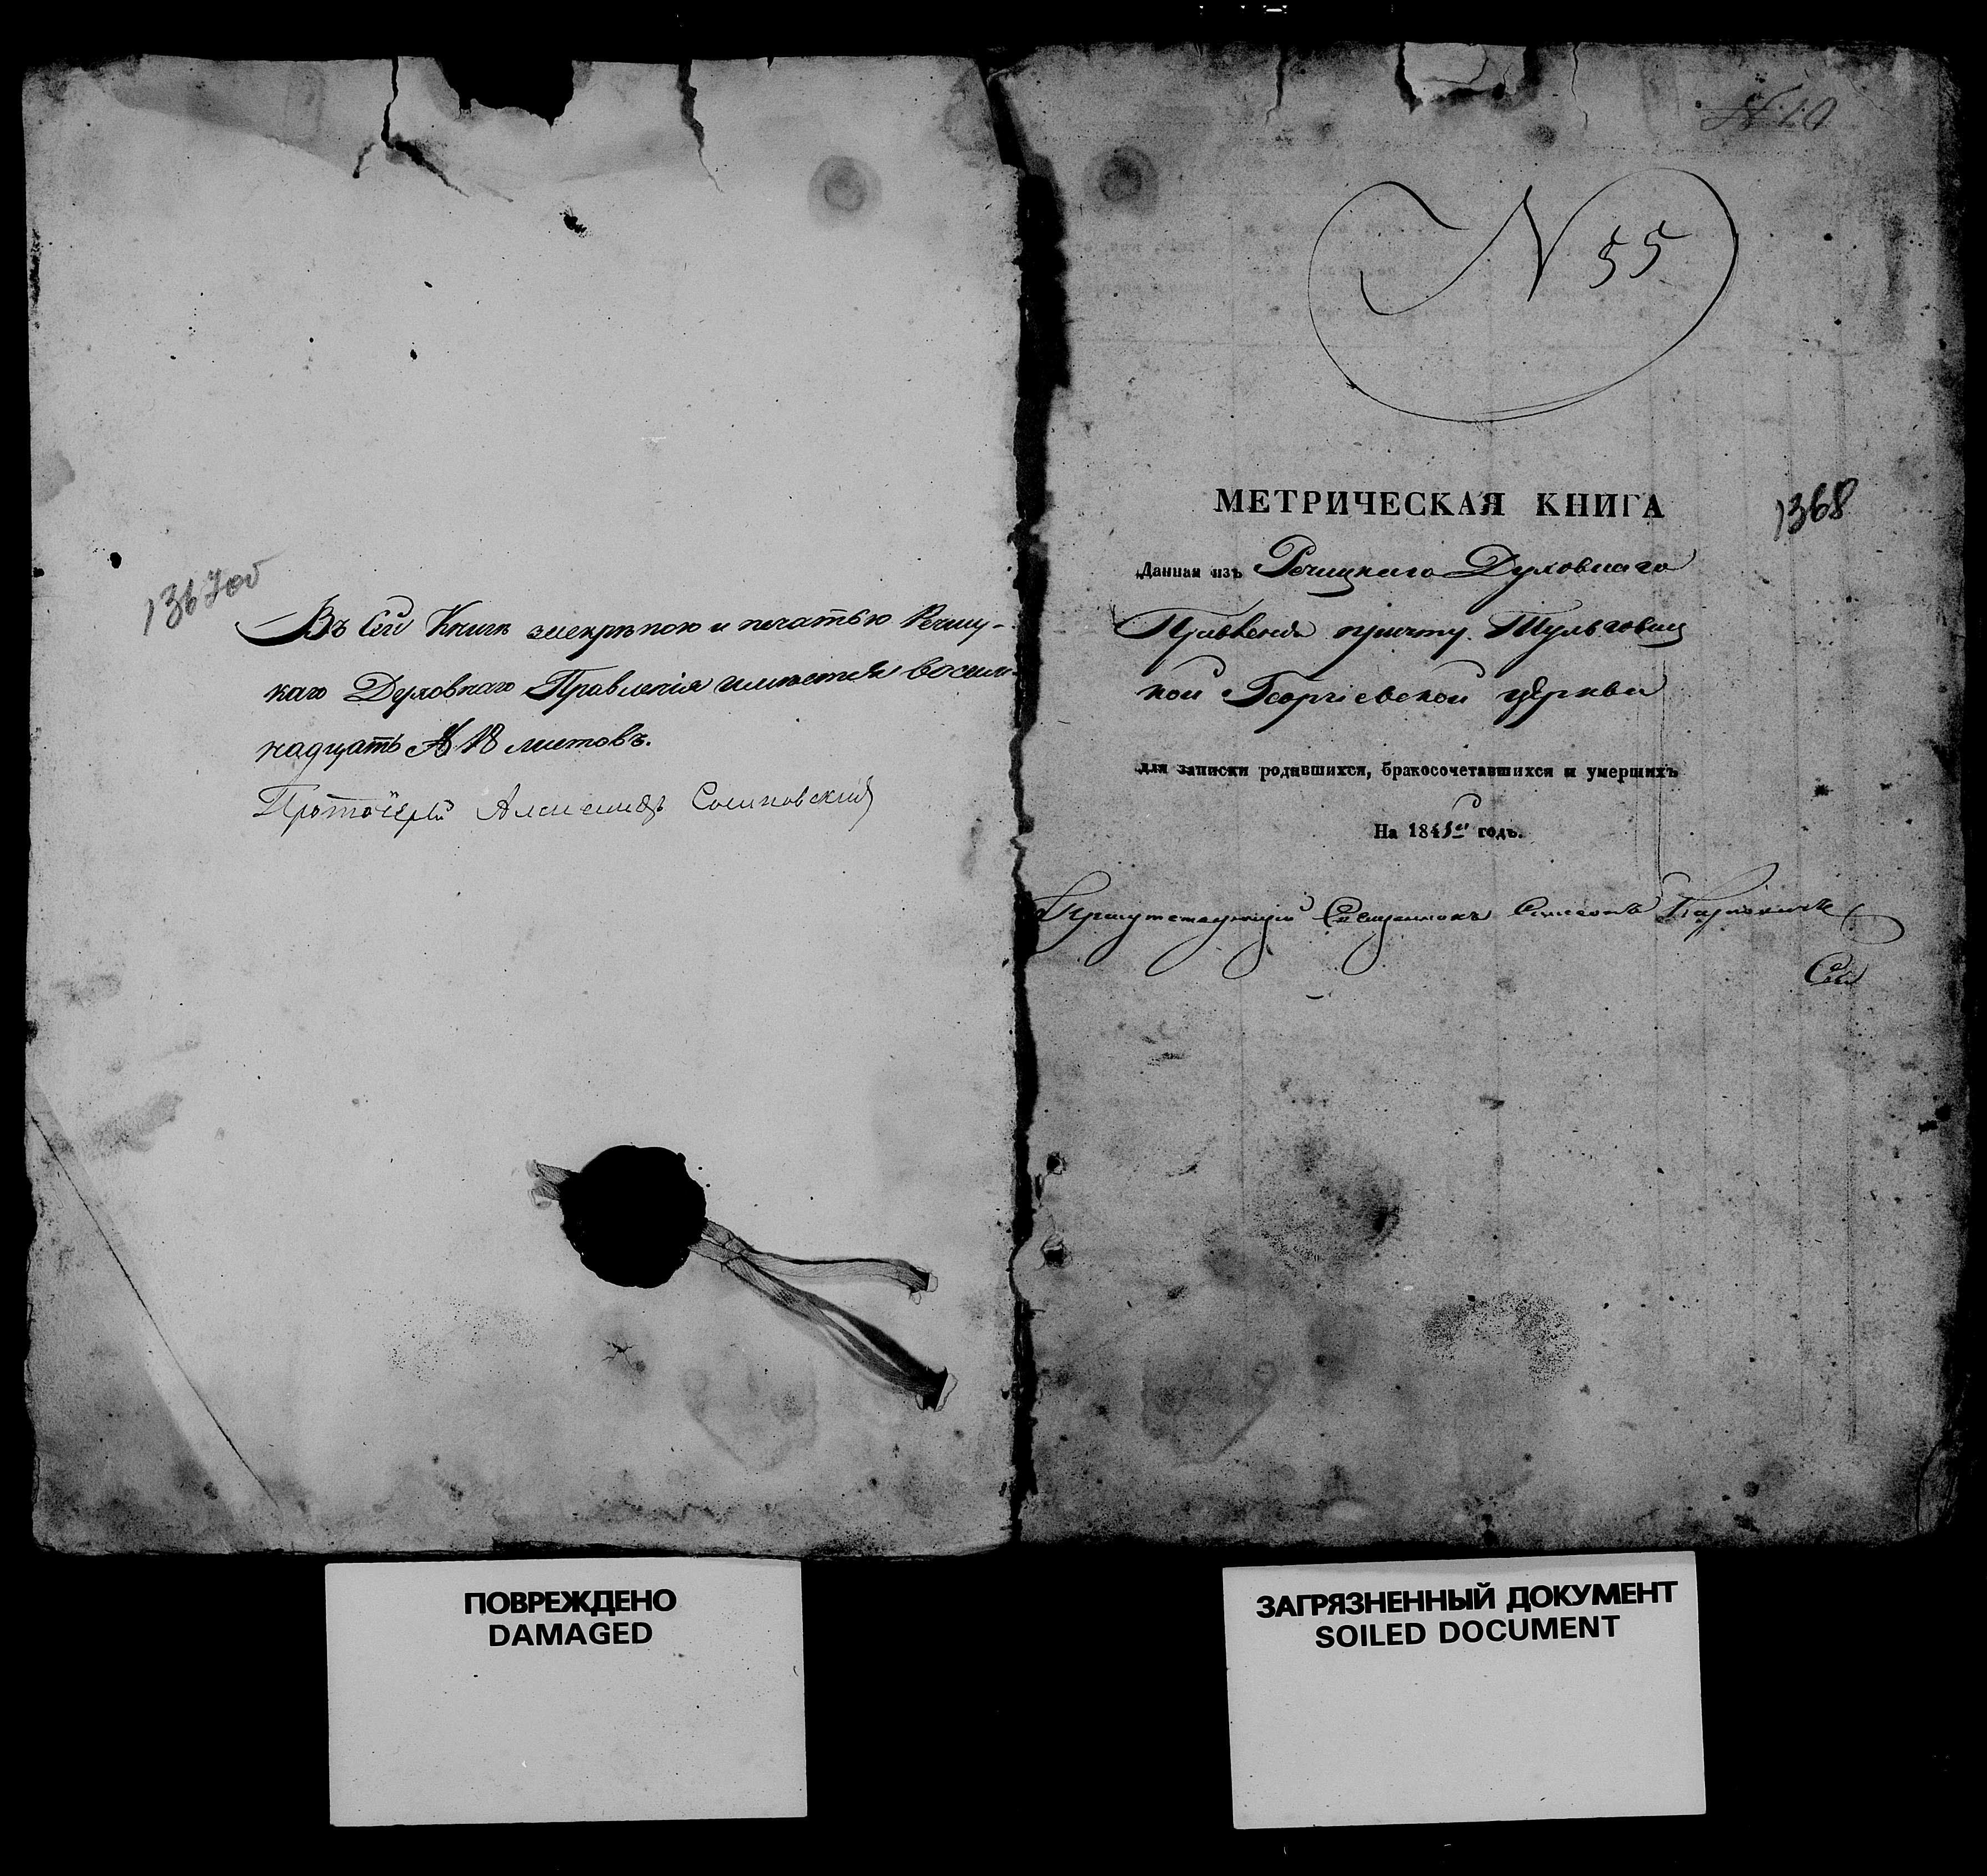 1367об
Въ сей Книге за скрепою и печатью Речиц-
каго Духовнаго Правленія имеется восем-
надцать 18 листовъ.
Протоіерей Александръ
№ 10
N 55
МЕТРИЧЕСКАЯ КНИГА
1368
Данная изъ Речицкаго Духовнаго
Правленія причту Тульговиц
кой Георгіевской церкви
для записки родившихся, бракосочетавшихся и умершихъ
На 1845й годъ.
Присутствующій Священникъ Симеонъ
Сей
ПОВРЕЖДЕНО
DAMAGED
ЗАГРЯЗНЕННЫЙ ДОКУМЕНТ
SOILED DOCUMENT